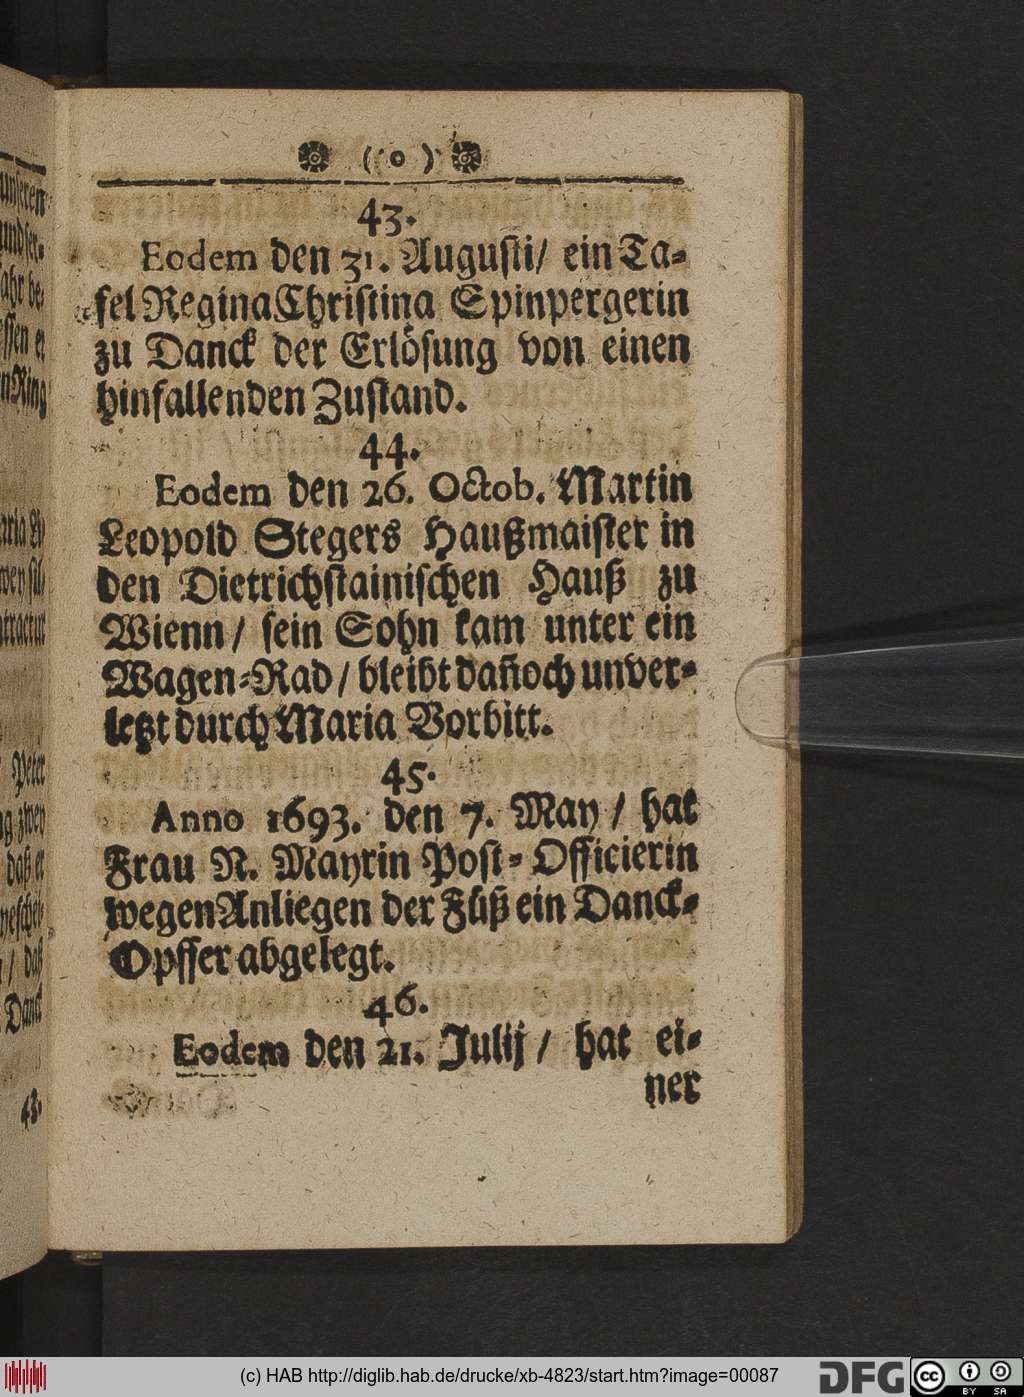 ( o )
43.
Eodem den 31. Augusti/ ein Ta-
fel Regina Christina Spinpergerin
zu Danck der Erlösung von einen
hinfallenden Zustand.
44.
Eodem den 26. Octob. Martin
Leopold Stegers Haußmaister in
den Dietrichstainischen Hauß zu
Wienn/ sein Sohn kam unter ein
Wagen-Rad/ bleibt dañoch unver-
letzt durch Maria Vorbitt.
45.
Anno 1693. den 7. May/ hat
Frau N. Mayrin Post-Officierin
wegen Anliegen der Füß ein Danck-
Opffer abgelegt.
46.
Eodem den 21. Julij/ hat ei-
ner
unseren
Ring
Peter
zwey
daß er
/ daß
Danck
43.
(c) HAB http://diglib.hab.de/drucke/xb-4823/start.htm?image=00087
DFG
cc
BY SA